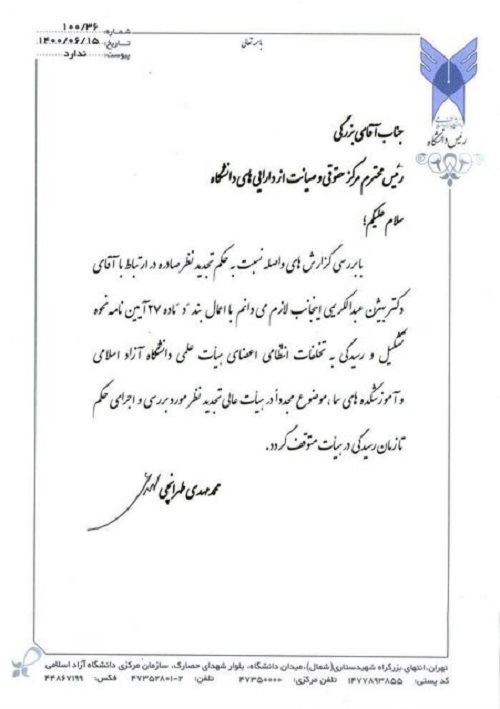 باسمه تعالی
شماره: ۱۰۰/۳۶
تاریخ: ۱۴۰۰/۰۶/۱۵
پیوست: ندارد
رئیس دانشگاه
جناب آقای بزرگی
رئیس محترم مرکز حقوقی و صیانت از دارایی های دانشگاه
سلام علیکم؛
با بررسی گزارش های واصله نسبت به حکم تجدید نظر صادره در ارتباط با آقای
دکتر بیژن عبدالکریمی اینجانب لازم می دانم با اعمال بند "د" ماده ۲۷ آیین نامه نحوه
تشکیل و رسیدگی به تخلفات انتظامی اعضای هیأت علمی دانشگاه آزاد اسلامی
و آموزشکده های سما، موضوع مجدداً در هیأت عالی تجدید نظر مورد بررسی و اجرای حکم
تا زمان رسیدگی در هیأت متوقف گردد.
محمد مهدی طهرانچی
تهران، انتهای بزرگراه شهید ستاری (شمال)، میدان دانشگاه، بلوار شهدای حصارک، سازمان مرکزی دانشگاه آزاد اسلامی
کد پستی: ۱۴۷۷۸۹۳۸۵۵ تلفن مرکزی: ۴۷۳۵۰۰۰۰ تلفن: ۴۷۳۵۲۸۰۱-۲ فکس: ۴۴۸۶۷۱۹۹